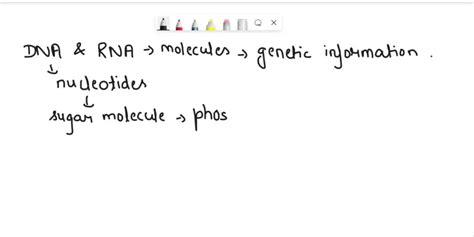 DNA & RNA → molecules → genetic information.
↓
nucleotides
↓
sugar molecule → phos